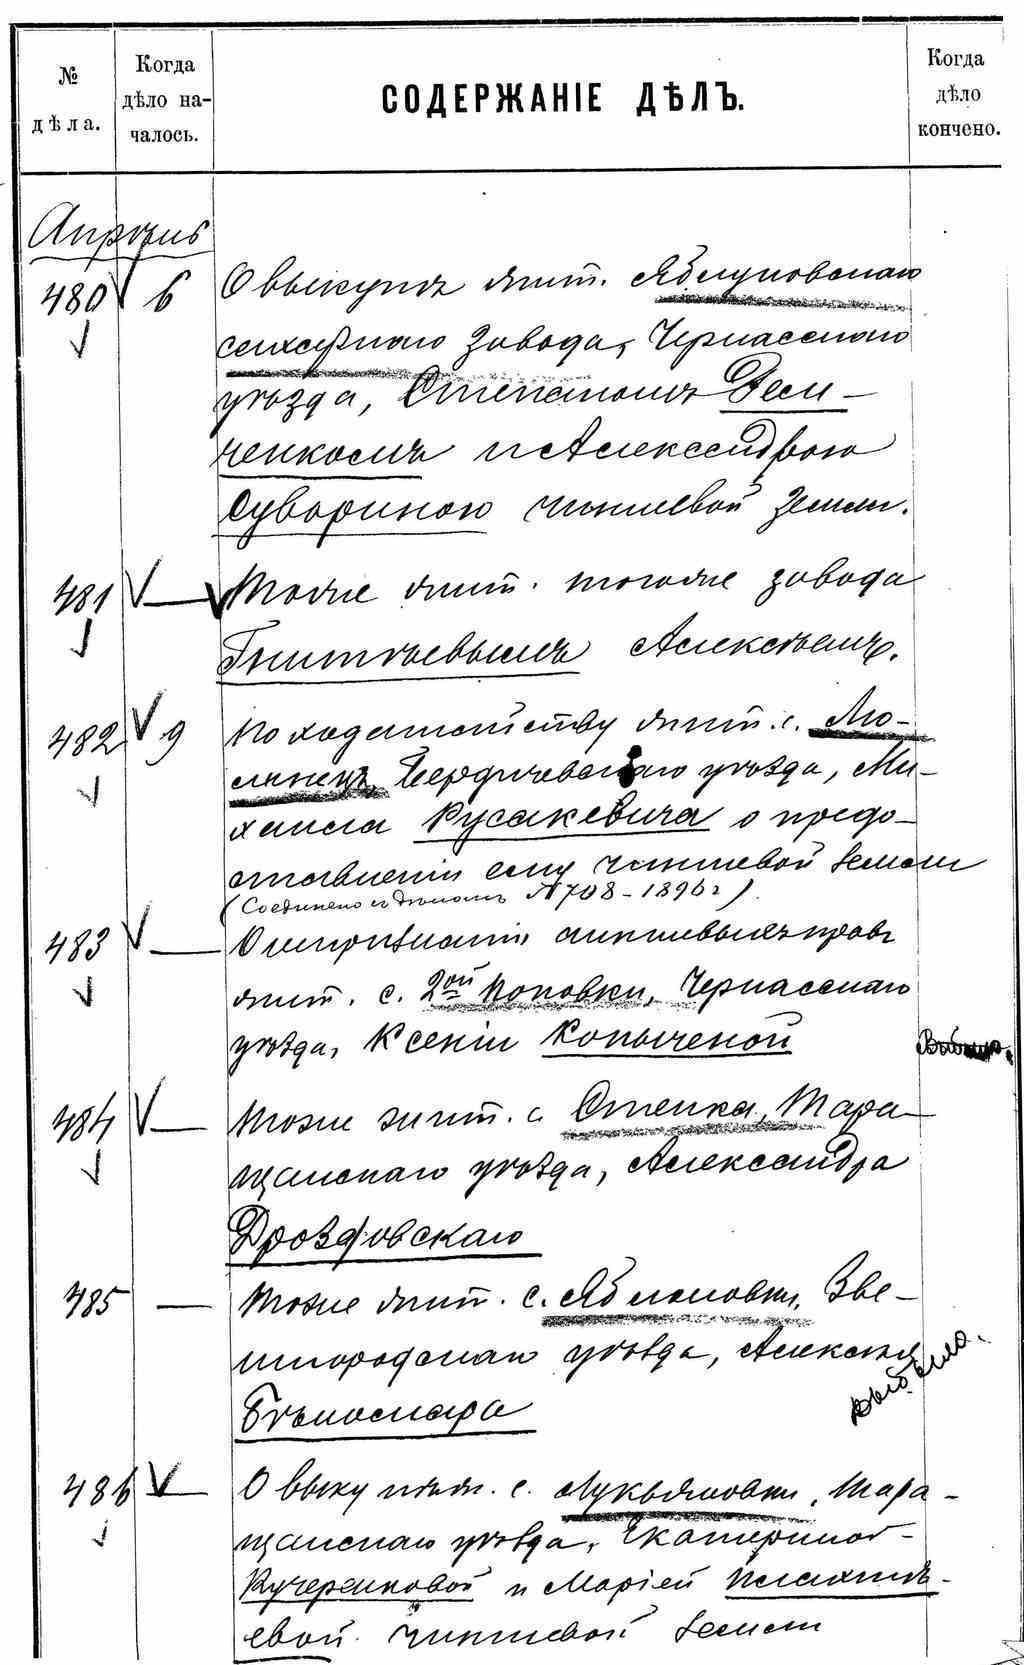 № дѣла.
Когда дѣло началось.
СОДЕРЖАНІЕ ДѢЛЪ.
Когда дѣло кончено.
Апрѣль
480 6 О выкупѣ жит. Яблуновскаго
сахарнаго завода, Черкасскаго
уѣзда, Степаномъ Дем-
ченкомъ и Александрою
Сувориною чиншевой земли.
481 — Тоже жит. тогоже завода
Алексѣемъ.
482 9 По ходатайству жит. с. Мо-
Бердичевскаго уѣзда, Ми-
хаила Русакевича о предо-
ставленіи ему чиншевой земли
(Соединено съ дѣломъ №708-1896г)
483 — О непризнаніи чиншевыхъ правъ
жит. с. 2ой Поповки, Черкасскаго
уѣзда, Ксеніи Копыченой
484 — Тоже жит. с. Степка, Тара-
щанскаго уѣзда, Александра
Дроздовскаго
485 — Тоже жит. с. Яблоновки, Зве-
нигородскаго уѣзда, Алексѣя
Бѣлошкара
выбыло.
486 — О выкупѣ жит. с. Лукьяновки, Тара-
щанскаго уѣзда, Екатериной
Кучеренковой и Маріей Плахтѣ-
евой чиншевой земли